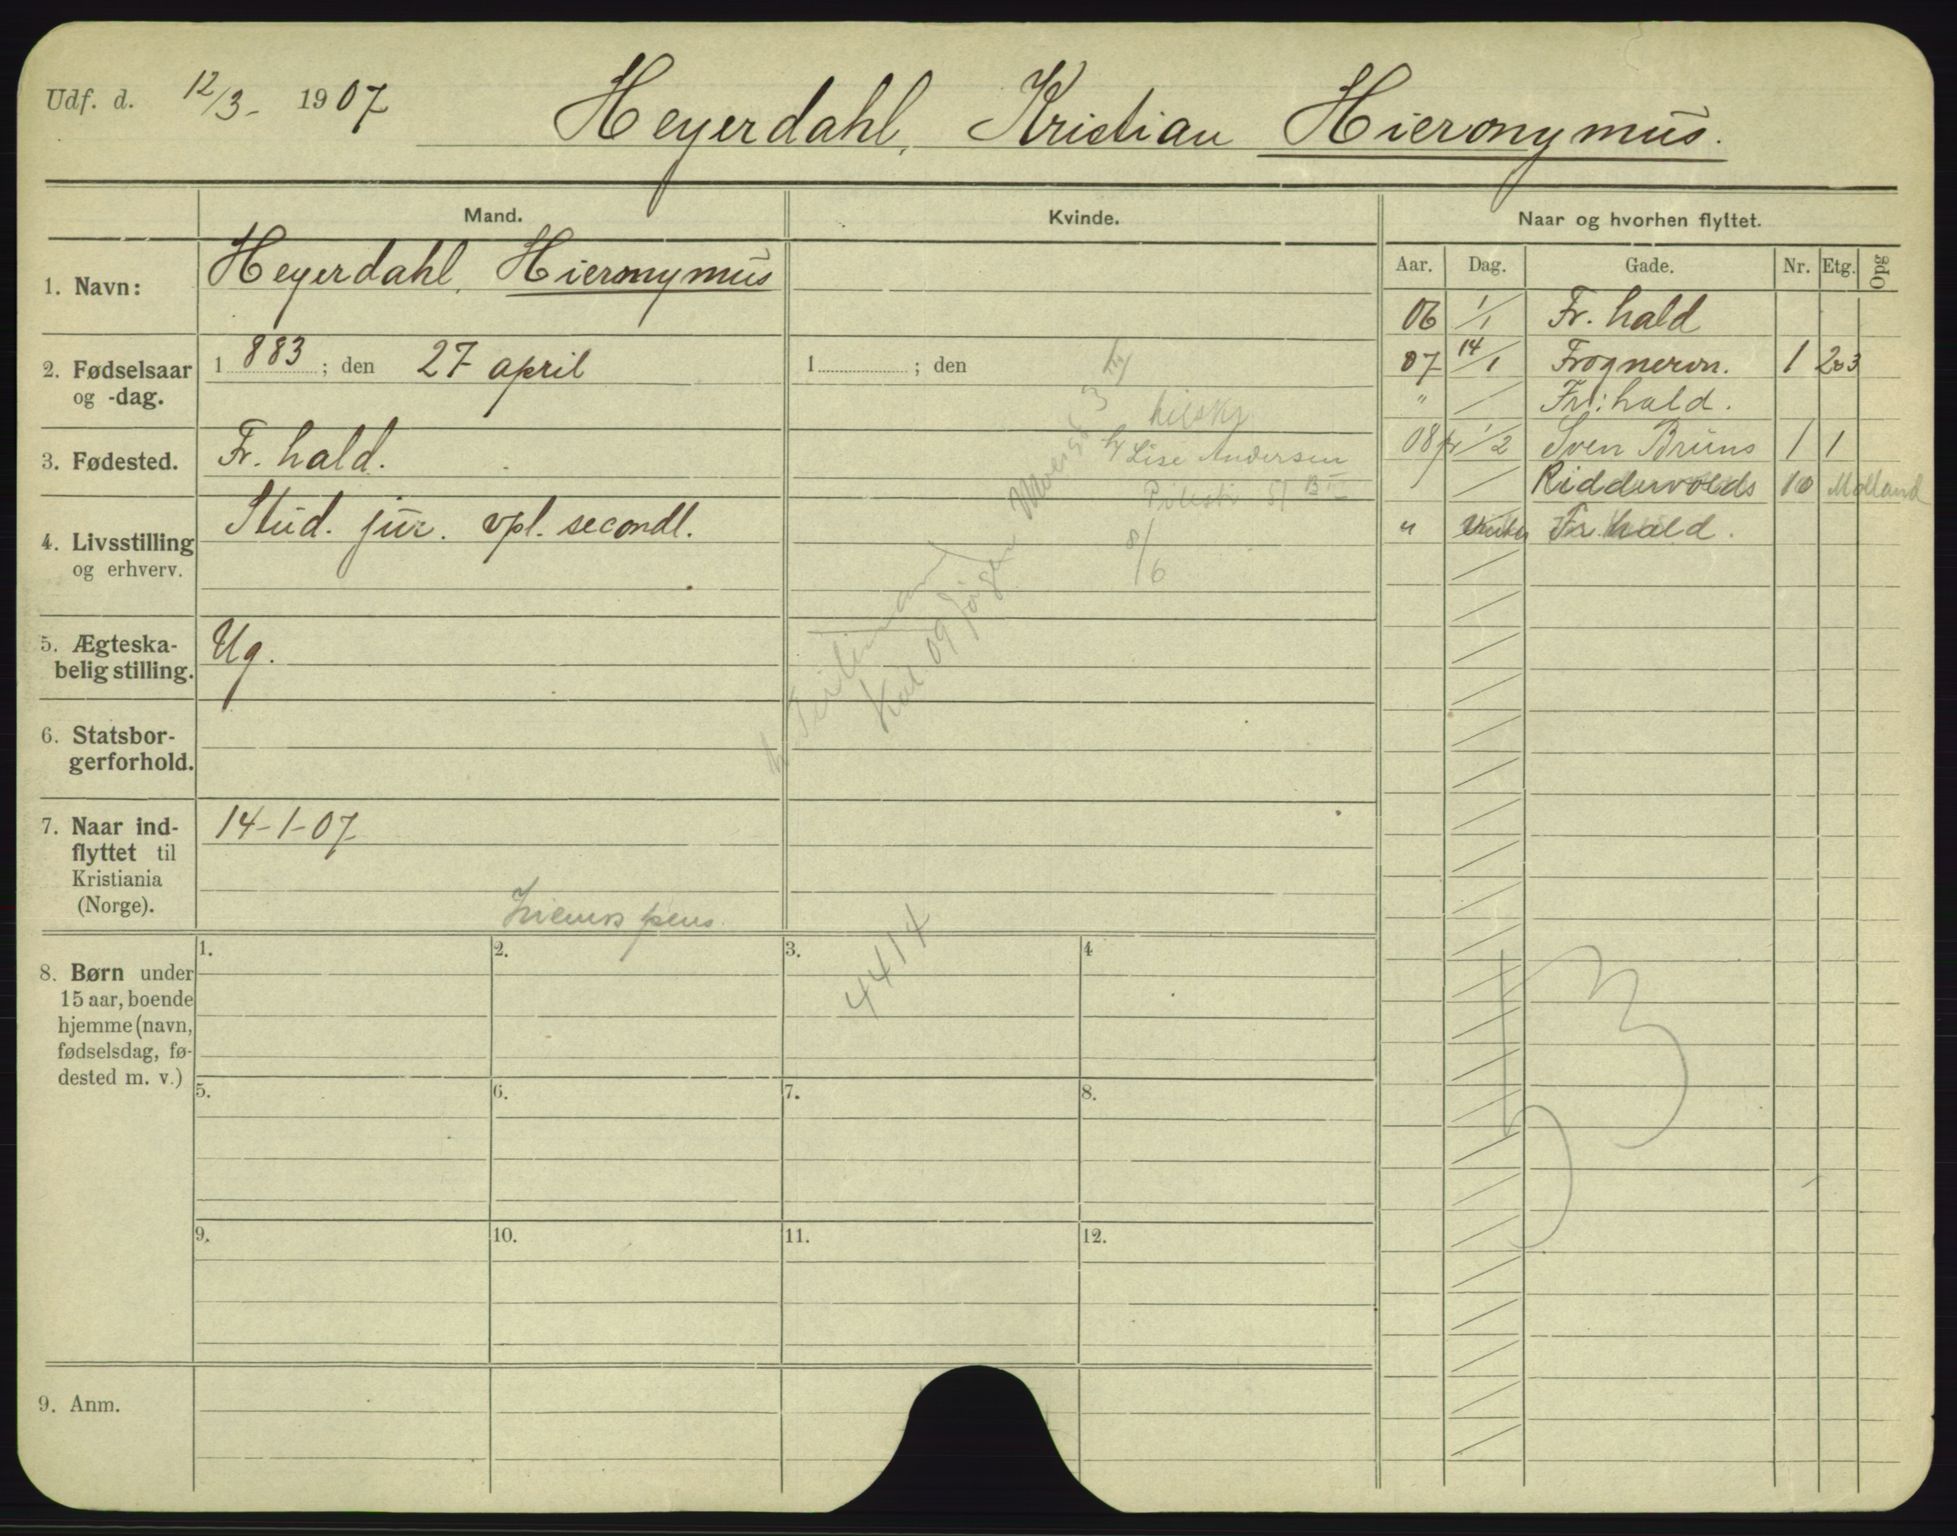 Udf. d. 12/3- 1907
Heyerdahl, Kristian Hieronymus.
Mand.
Kvinde.
Naar og hvorhen flyttet.
Aar. Dag. Gade. Nr. Etg. Opg
1. Navn:
Heyerdahl, Hieronymus
06 1/1 Fr. hald
2. Fødselsaar
og -dag.
1883; den 27 april
1 ; den
07 14/1 Frognervn. 1 2 3
" Fr. hald.
08 1/2 Sven Bruns 1 1
3. Fødested.
Fr. hald.
Lise Andersen
Riddervolds 10 Molland
4. Livsstilling
og erhverv.
Stud. jur. vpl. secondl.
8/6
" Fr. hald.
5. Ægteska-
belig stilling.
Ug.
09
6. Statsbor-
gerforhold.
7. Naar ind-
flyttet til
Kristiania
(Norge).
14-1-07
pens.
4414
8. Børn under
15 aar, boende
hjemme (navn,
fødselsdag, fø-
dested m. v.)
1. 2. 3. 4
5. 6. 7. 8.
9. 10. 11. 12.
9. Anm.